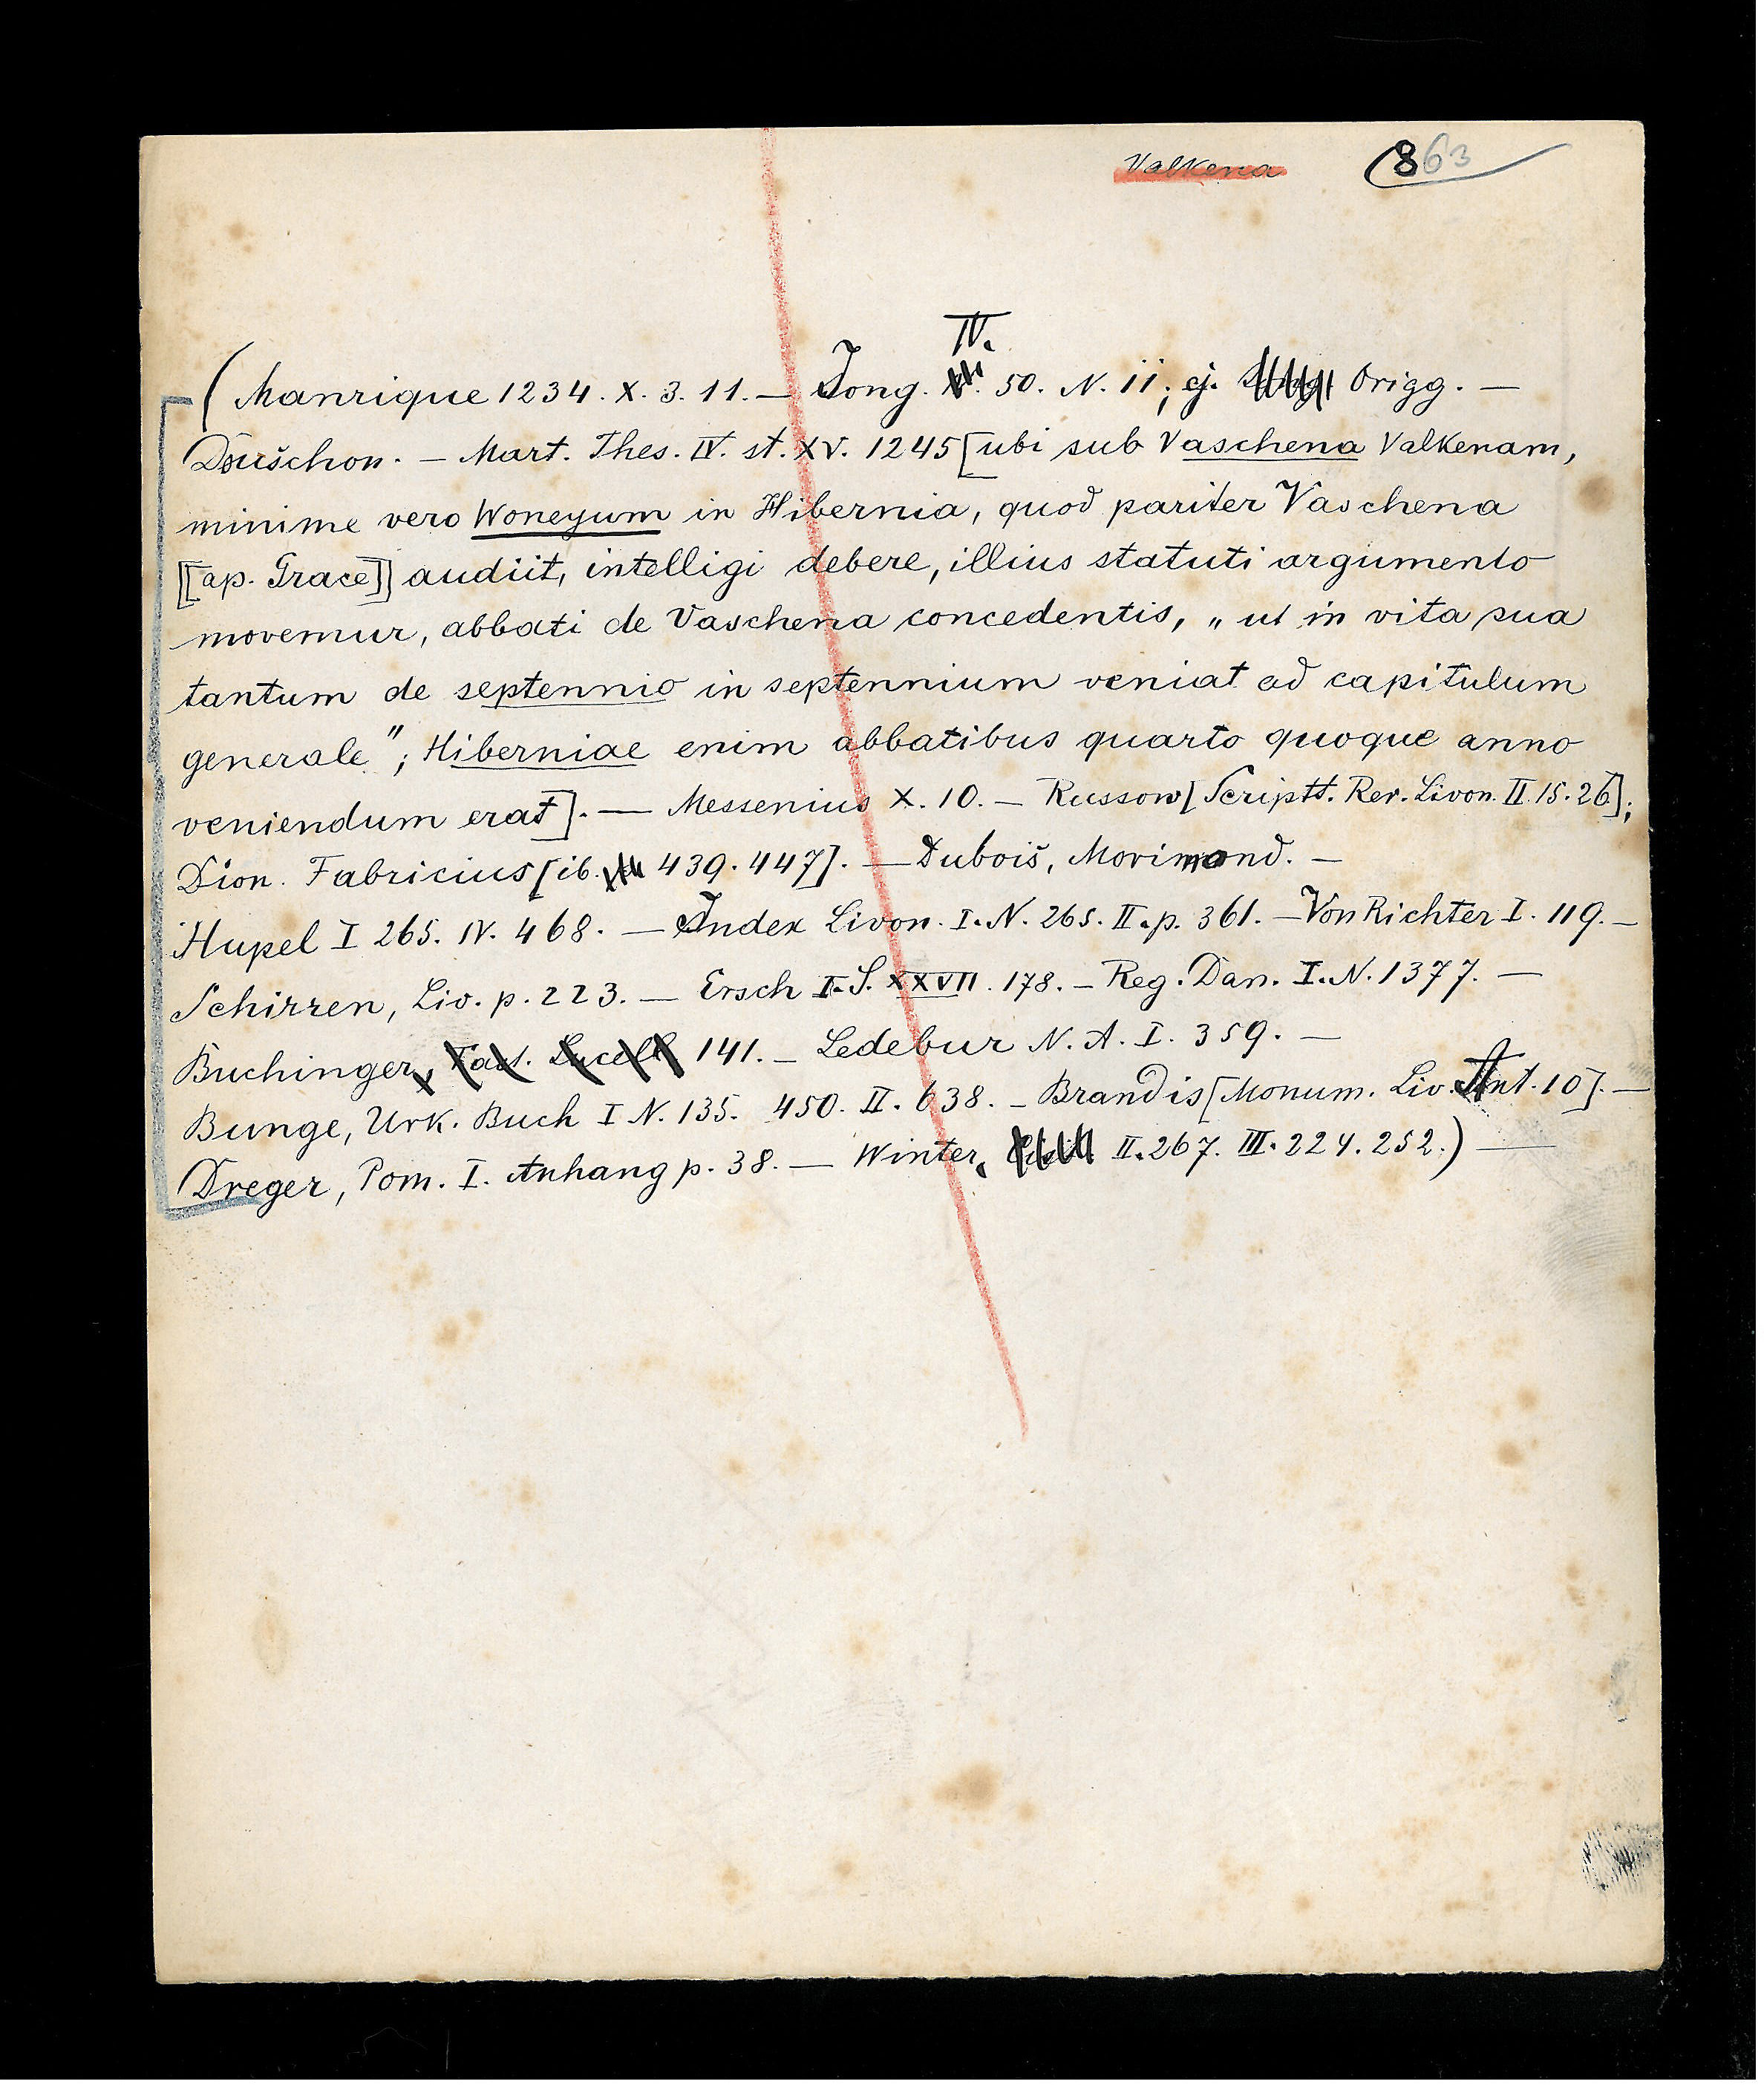 Valkena 863
IV.
(Manrique 1234. X. 3. 11. — Jong. 50. N. 11; ej. Origg. —
Duischon. — Mart. Thes. IV. st. XV. 1245 [ubi sub Vaschena Valkenam,
minime vero Woneyum in Hibernia, quod pariter Vaschena
[[ap. Grace]] audiit, intelligi debere, illius statuti argumento
movemur, abbati de Vaschena concedentis, „ut in vita sua
tantum de septennio in septennium veniat ad capitulum
generale"; Hiberniae enim abbatibus quarto quoque anno
veniendum erat]. — Messenius X. 10. — Russow [Scriptt. Rer. Livon. II. 15. 26];
Dion. Fabricius [ib. 439. 447]. — Dubois, Morimond. —
Hupel I 265. IV. 468. — Index Livon. I. N. 265. II. p. 361. — Von Richter I. 119. —
Schirren, Liv. p. 223. — Ersch I. S. XXVII. 178. — Reg. Dan. I. N. 1377. —
Buchinger, 141. — Ledebur N. A. I. 359. —
Bunge, Urk. Buch I N. 135. 450. II. 638. — Brandis [Monum. Liv. Ant. 10]. —
Dreger, Pom. I. Anhang p. 38. — Winter, II. 267. III. 224. 252.) —